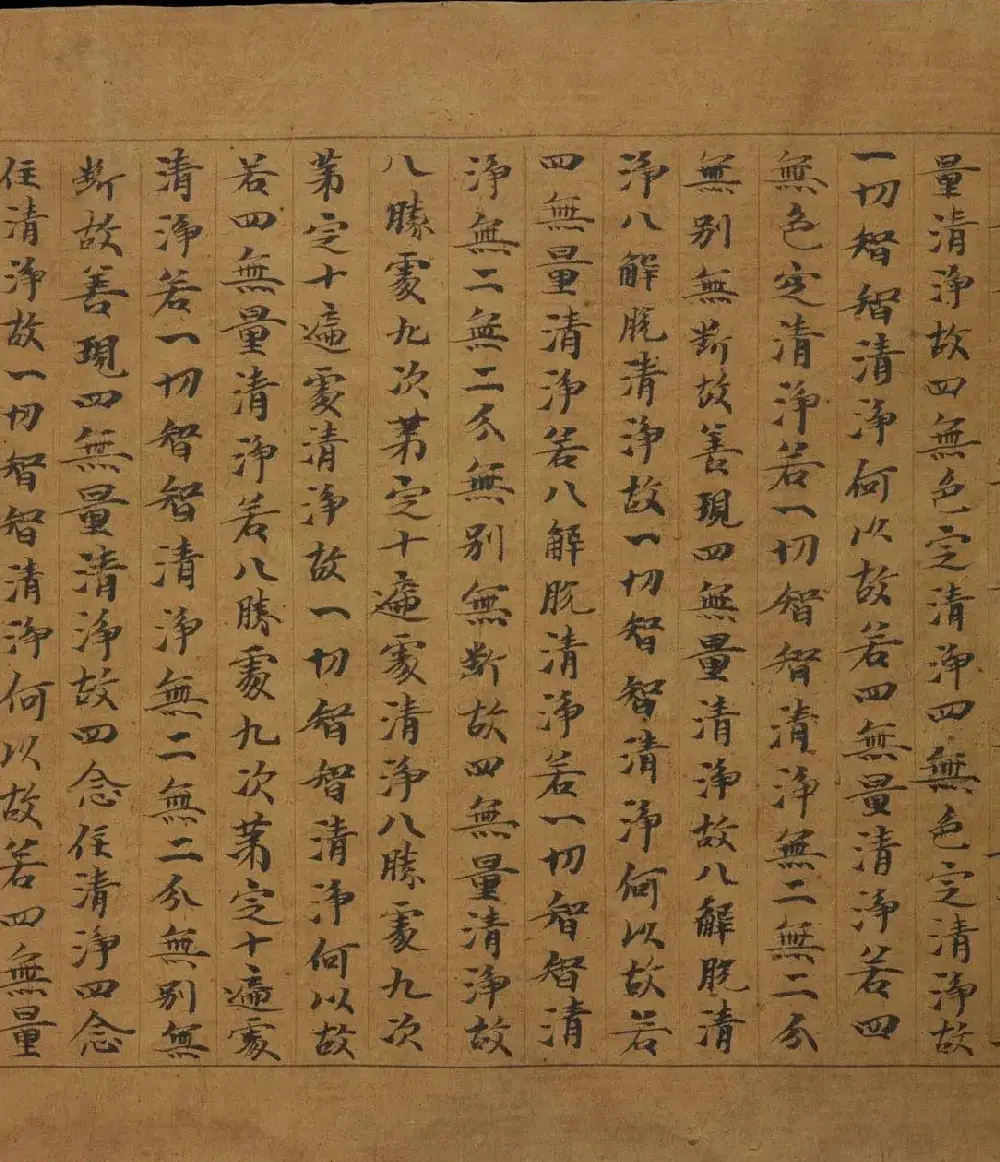 量清淨故四無色定清淨四無色定清淨故
一切智智清淨何以故若四無量清淨若四
無色定清淨若一切智智清淨無二無二分
無別無斷故善現四無量清淨故八解脫清
淨八解脫清淨故一切智智清淨何以故若
四無量清淨若八解脫清淨若一切智智清
淨無二無二分無別無斷故四無量清淨故
八勝處九次第定十遍處清淨八勝處九次
第定十遍處清淨故一切智智清淨何以故
若四無量清淨若八勝處九次第定十遍處
清淨若一切智智清淨無二無二分無別無
斷故善現四無量清淨故四念住清淨四念
住清淨故一切智智清淨何以故若四無量